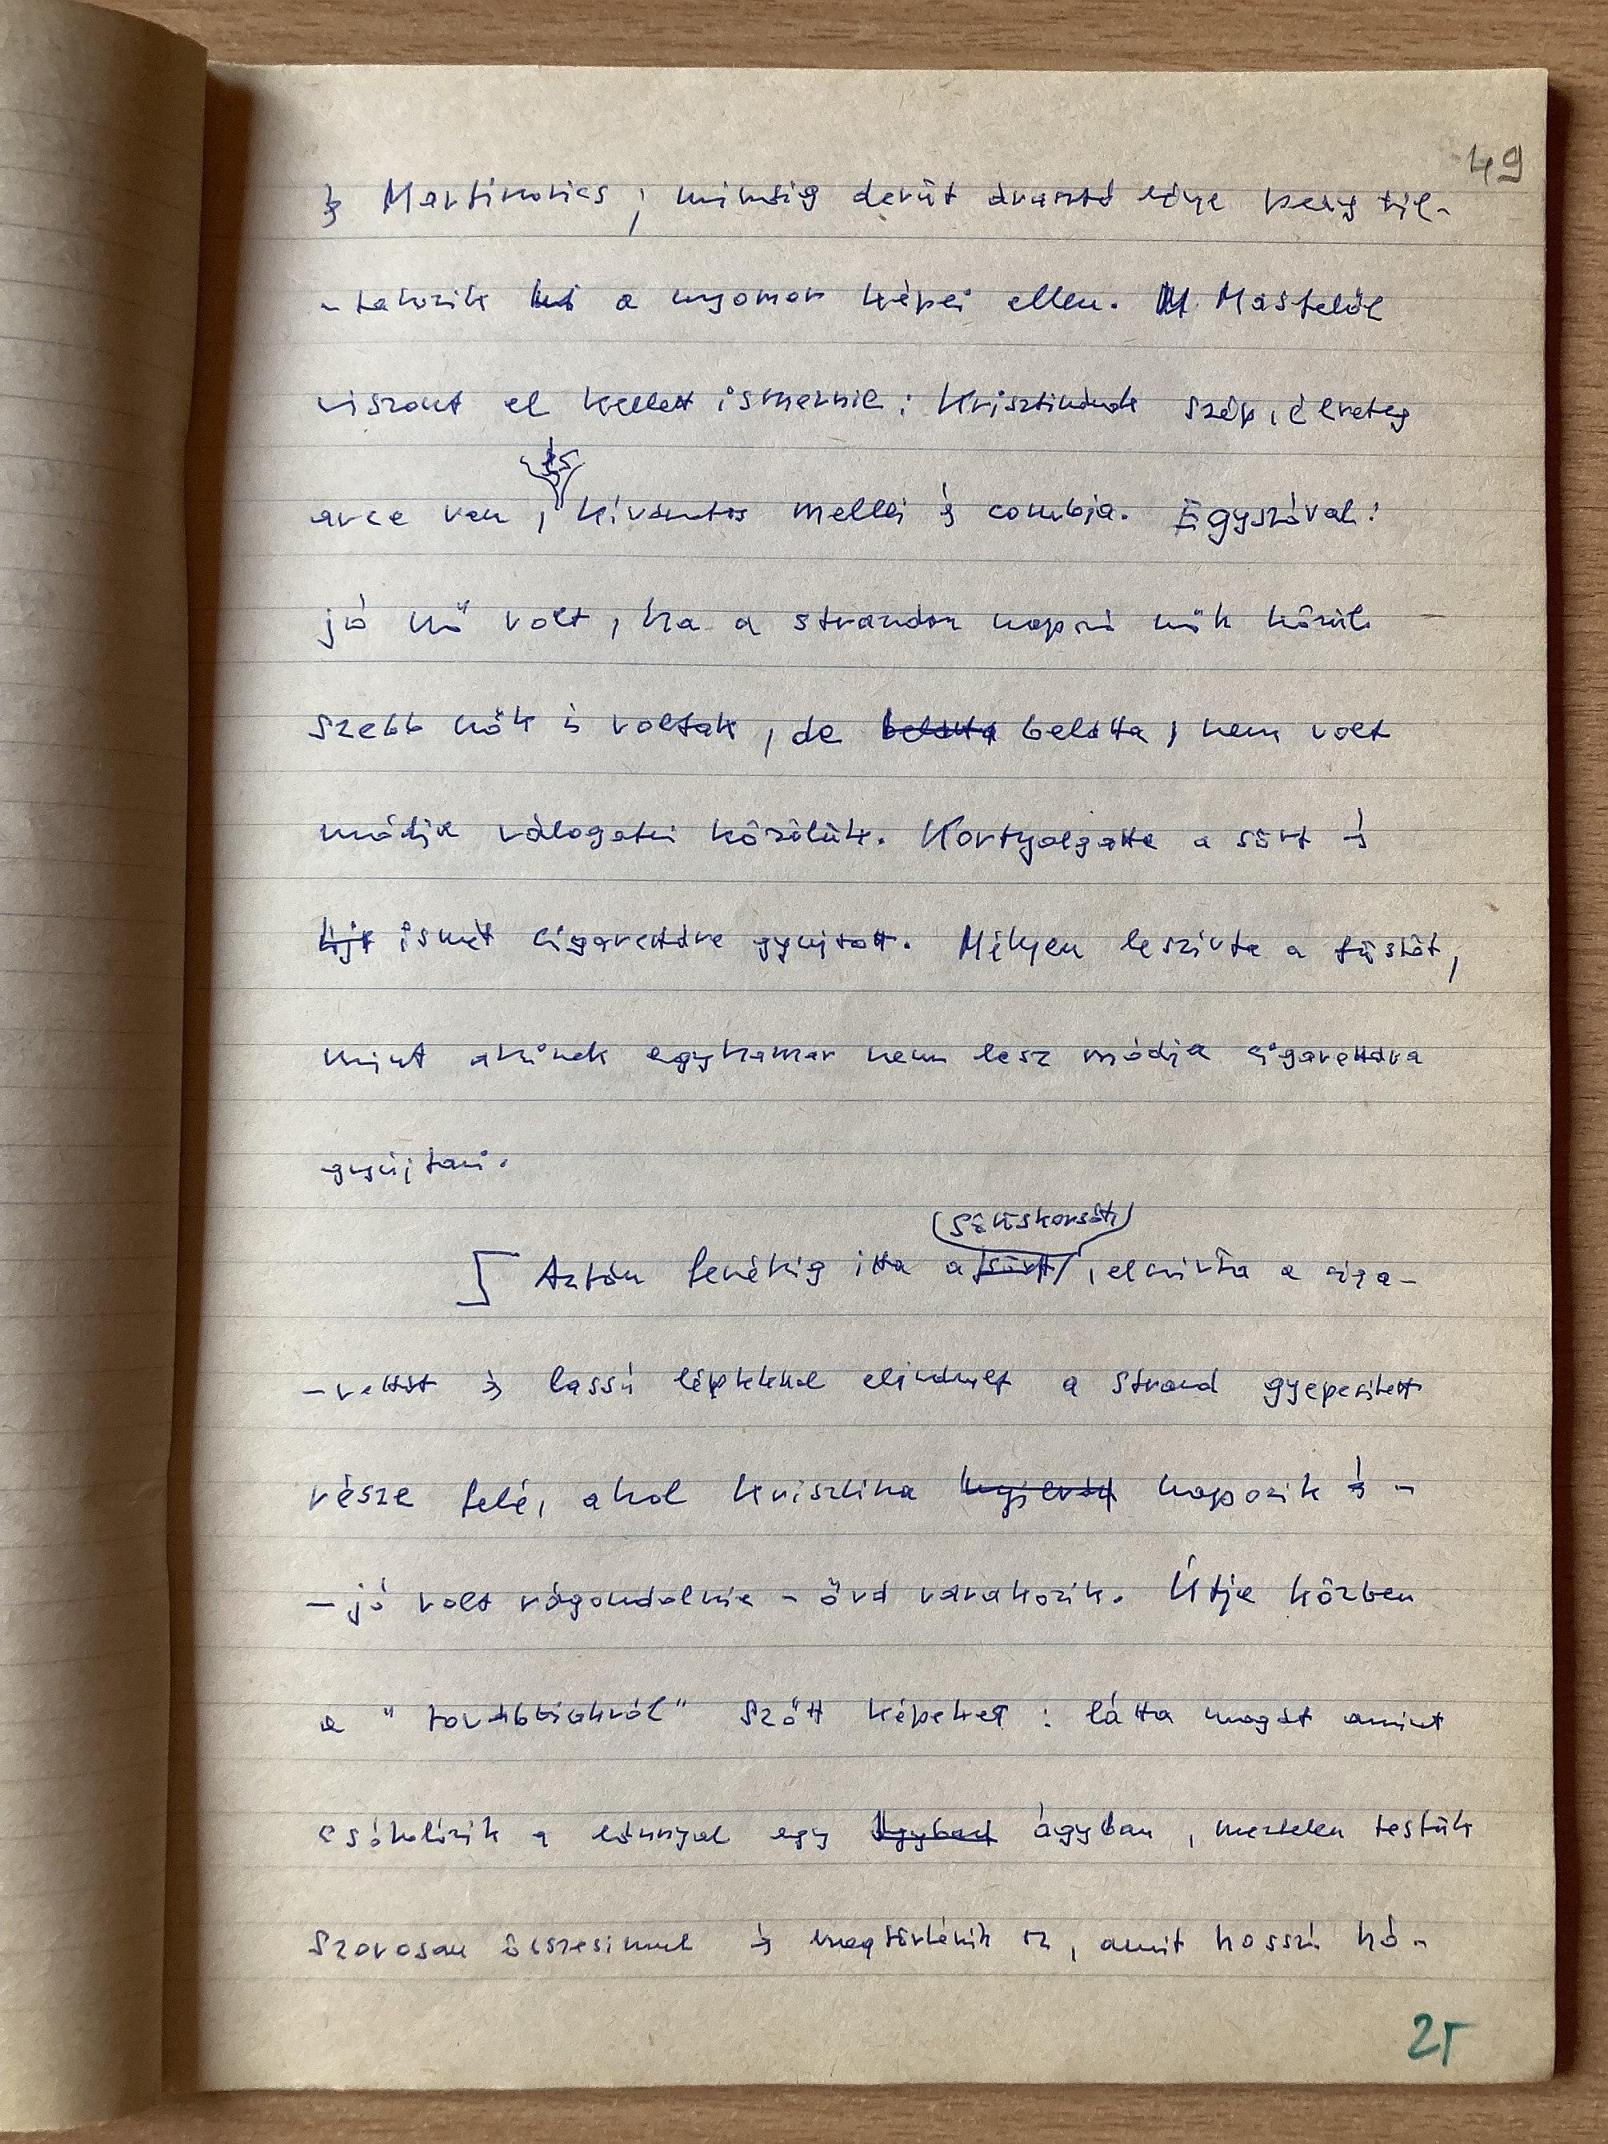 49
és Martinovics, mindig derűt árasztó lénye persze til-
-takozik a nyomor képei ellen. Másfelől
viszont el kellett ismernie: Krisztinának szép, élveteg
és
arca van, kívánatos mellei és combja. Egyszóval:
jó nő volt, ha a strandon napozó nők közül
szebb nők is voltak, de belátta belátta, nem volt
módja válogatni közülük. Kortyolgatta a sört és
újr ismét cigarettára gyujtott. Mélyen leszívta a füstöt,
mint akinek egyhamar nem lesz módja cigarettára
gyújtani.
söröskorsót
Aztán fenékig itta a sört, elszívta a ciga-
-rettát és lassú léptekkel elindult a strand gyepesített
része felé, ahol Krisztina napozik és -
- jó volt rágondolnia - őrá várakozik. Útja közben
a "továbbiakról" szőtt képeket: látta magát amint
csókolózik a lánnyal egy ágyban, meztelen testük
szorosan összesimul és megtörténik az, amit hosszú hó-
25